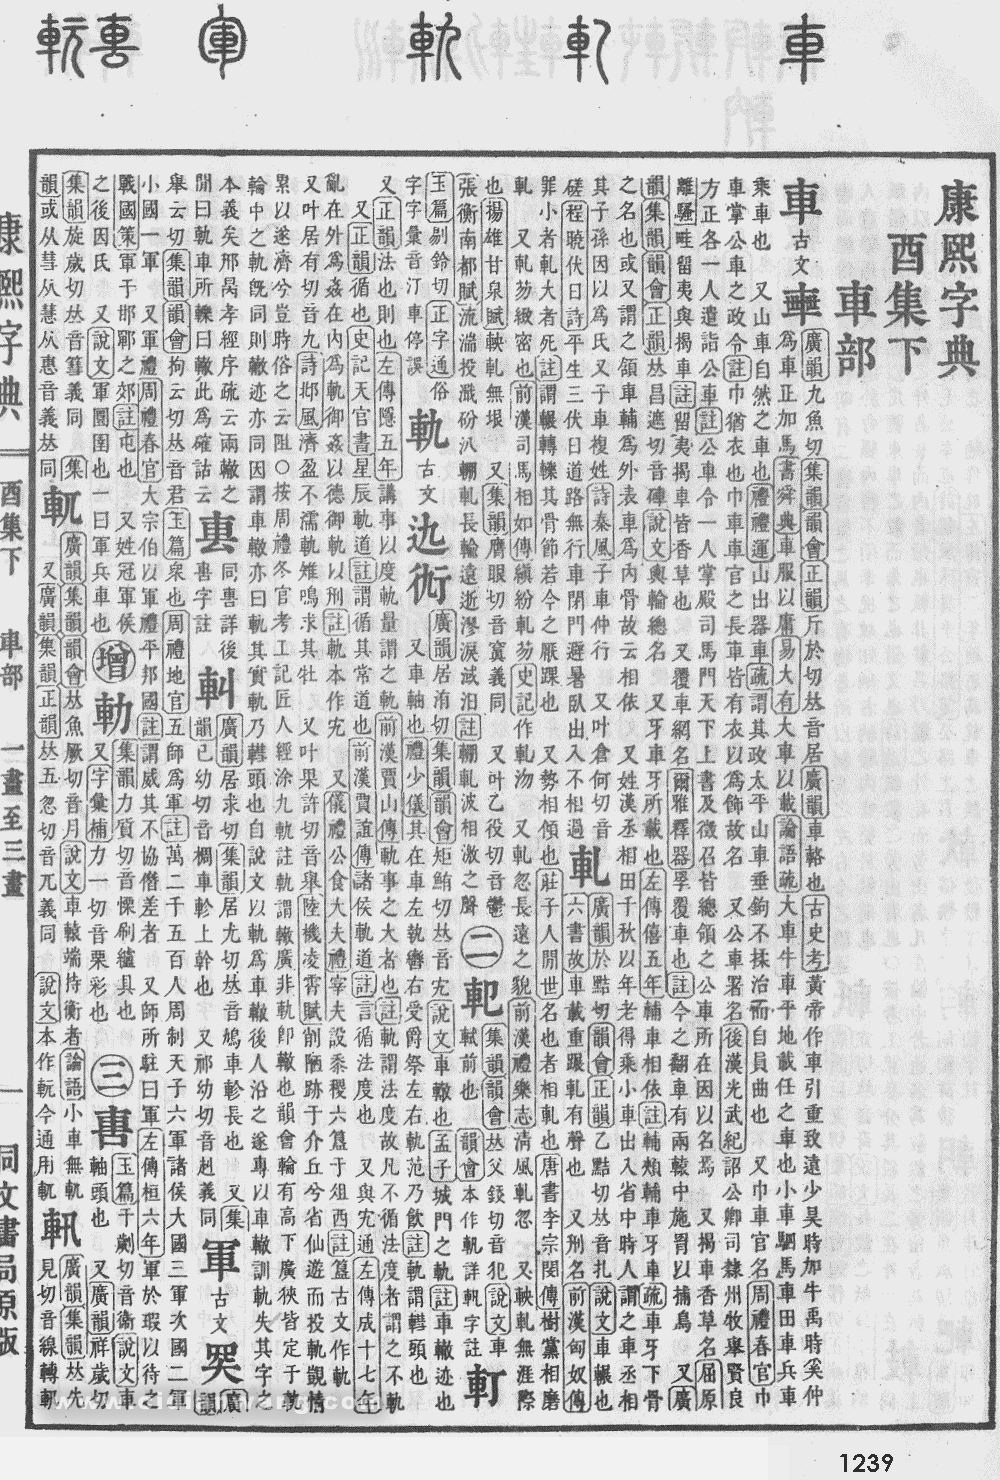 康熙字典
酉集下
車部
車
古文
廣韻九魚切集韻韻會正韻斤於切𠀤音居廣韻車輅也古史考黃帝作車引重致遠少昊時加牛禹時奚仲
爲車正加馬書舜典車服以庸易大有大車以載論語疏大車牛車平地載任之車也小車駟馬車田車兵車
乘車也 又山車自然之車也禮禮運山出器車疏謂其政太平山車垂鉤不揉治而自員曲也 又巾車官名周禮春官巾
車掌公車之政令註巾猶衣也巾車車官之長車皆有衣以爲飾故名 又公車署名後漢光武紀詔公卿司隸州牧舉賢良
方正各一人遣詣公車註公車令一人掌殿司馬門天下上書及徵召皆總領之公車所在因以名焉 又揭車香草名屈原
離騷畦留夷與揭車註留夷揭車皆香草也 又覆車網名爾雅釋器罦覆車也註今之翻車有兩轅中施罥以捕鳥 又廣
韻集韻韻會正韻𠀤昌遮切音硨說文輿輪總名 又牙車牙所載也左傳僖五年輔車相依註輔頰輔車牙車疏車牙下骨
之名也或又謂之頷車輔爲外表車爲內骨故云相依 又姓漢丞相田千秋以年老得乘小車出入省中時人謂之車丞相
其子孫因以爲氏又子車複姓詩秦風子車仲行 又叶倉何切音
磋程曉伏日詩平生三伏日道路無行車閉門避暑臥出入不相過
軋
六書故車載重踝軋有聲也 又刑名前漢匈奴傳
廣韻於黠切韻會正韻乙黠切𠀤音扎說文車輾也
罪小者軋大者死註謂輾轉轢其骨節若今之厭踝也 又勢相傾也莊子人閒世名也者相軋也唐書李宗閔傳樹黨相磨
軋 又軋芴緻密也前漢司馬相如傳縝紛軋芴史記作軋沕 又軋忽長遠之貌前漢禮樂志淸風軋忽 又軮軋無涯際
也揚雄甘泉賦軮軋無垠 又集韻膺眼切音𡫼義同 又叶乙役切音鬱
張衡南都賦流湍投濈砏汃輣軋長輪遠逝漻淚淢汩註輣軋波相激之聲
二
軓
集韻韻會𠀤父錽切音犯說文車
軾前也 韻會本作軓詳軓字註
軒
玉篇剔鈴切正字通俗
字字彙音汀車停誤
軌
古文
𨒋𧗪
廣韻居洧切集韻韻會矩鮪切𠀤音宄說文車轍也孟子城門之軌註車轍迹也
又車軸也禮少儀其在車左執轡右受爵祭左右軌范乃飮註軌謂轊頭也
又正韻法也則也左傳隱五年講事以度軌量謂之軌前漢賈山傳軌事之大者也註軌謂法度也 又凡不循法度者謂之不軌
又正韻循也史記天官書星辰軌道註謂循其常道也前漢賈誼傳諸侯軌道註言循法度也 又與宄通左傳成十七年
亂在外爲姦在內爲軌御姦以德御軌以刑註軌本作宄 又儀禮公食大夫禮宰夫設黍稷六簋于俎西註簋古文作軌
又叶居有切音九詩邶風濟盈不濡軌雉鳴求其牡 又叶果許切音舉陸機凌霄賦削陋跡于介丘兮省仙遊而投軌覿情
累以遂濟兮豈時俗之云阻○按周禮冬官考工記匠人經涂九軌註軌謂轍廣非軌卽轍也韻會輪有高下廣狹皆定于軌
輪中之軌旣同則轍迹亦同因謂車轍亦曰軌其實軌乃轊頭也自說文以軌爲車轍後人沿之遂專以車轍訓軌失其字之
本義矣邢昺孝經序疏云兩轍之
閒曰軌車所轢曰轍此爲確詁云
軎字註
同軎詳後
𨊻
廣韻居求切集韻居尤切𠀤音鳩車軫長也 又集
韻已幼切音樛車軫上幹也 又祁幼切音赳義同
軍
古文
廣
韻
舉云切集韻韻會拘云切𠀤音君玉篇衆也周禮地官五師爲軍註萬二千五百人周制天子六軍諸侯大國三軍次國二軍
小國一軍 又軍禮周禮春官大宗伯以軍禮平邦國註謂威其不協僭差者 又師所駐曰軍左傳桓六年軍於瑕以待之
戰國策軍于邯鄲之郊註屯也 又姓冠軍侯
之後因氏 又說文軍圜圍也一曰軍兵車也
增
集韻力質切音慄刷纑具也
又字彙補力一切音栗彩也
三
軎
玉篇于劌切音衞說文車
軸頭也 又廣韻祥歲切
集韻旋歲切𠀤音篲義同 集
韻或从彗从慧从惠音義𠀤同
軏
廣韻集韻韻會𠀤魚厥切音月說文車轅端持衡者論語小車無軏
又廣韻集韻正韻𠀤五忽切音兀義同 說文本作軏今通用軏
軐
廣韻集韻𠀤先
見切音線轉軐
康熙字典
酉集下
車部
一畫至三畫
一
同文書局原版
1239